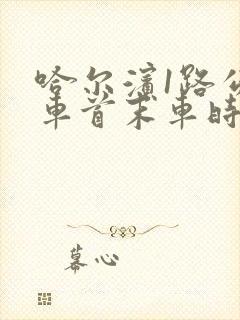 哈尔滨1路公
车首末车时
幕心